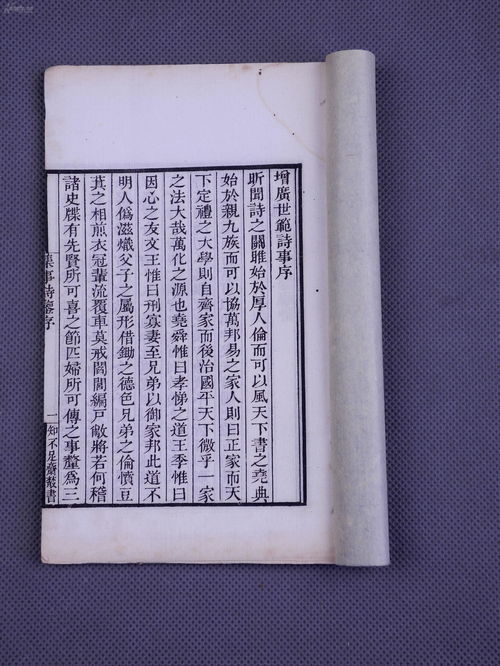 增廣世範詩事序
昕聞詩之關雎始於厚人倫而可以風天下書之堯典
始於親九族而可以協萬邦易之家人則曰正家而天
下定禮之大學則自齊家而後治國平天下微乎一家
之法大哉萬化之源也堯舜惟曰孝悌之道王季惟曰
因心之友文王惟曰刑寡妻至兄弟以御家邦此道不
明人僞滋熾父子之屬形借鋤之德色兄弟之倫憤豆
萁之相煎衣冠輩流覆車莫戒閭閻編戶敝將若何稽
諸史牒有先賢所可喜之節匹婦所可傳之事釐爲三
集事詩鑒序
一
知不足齋叢書